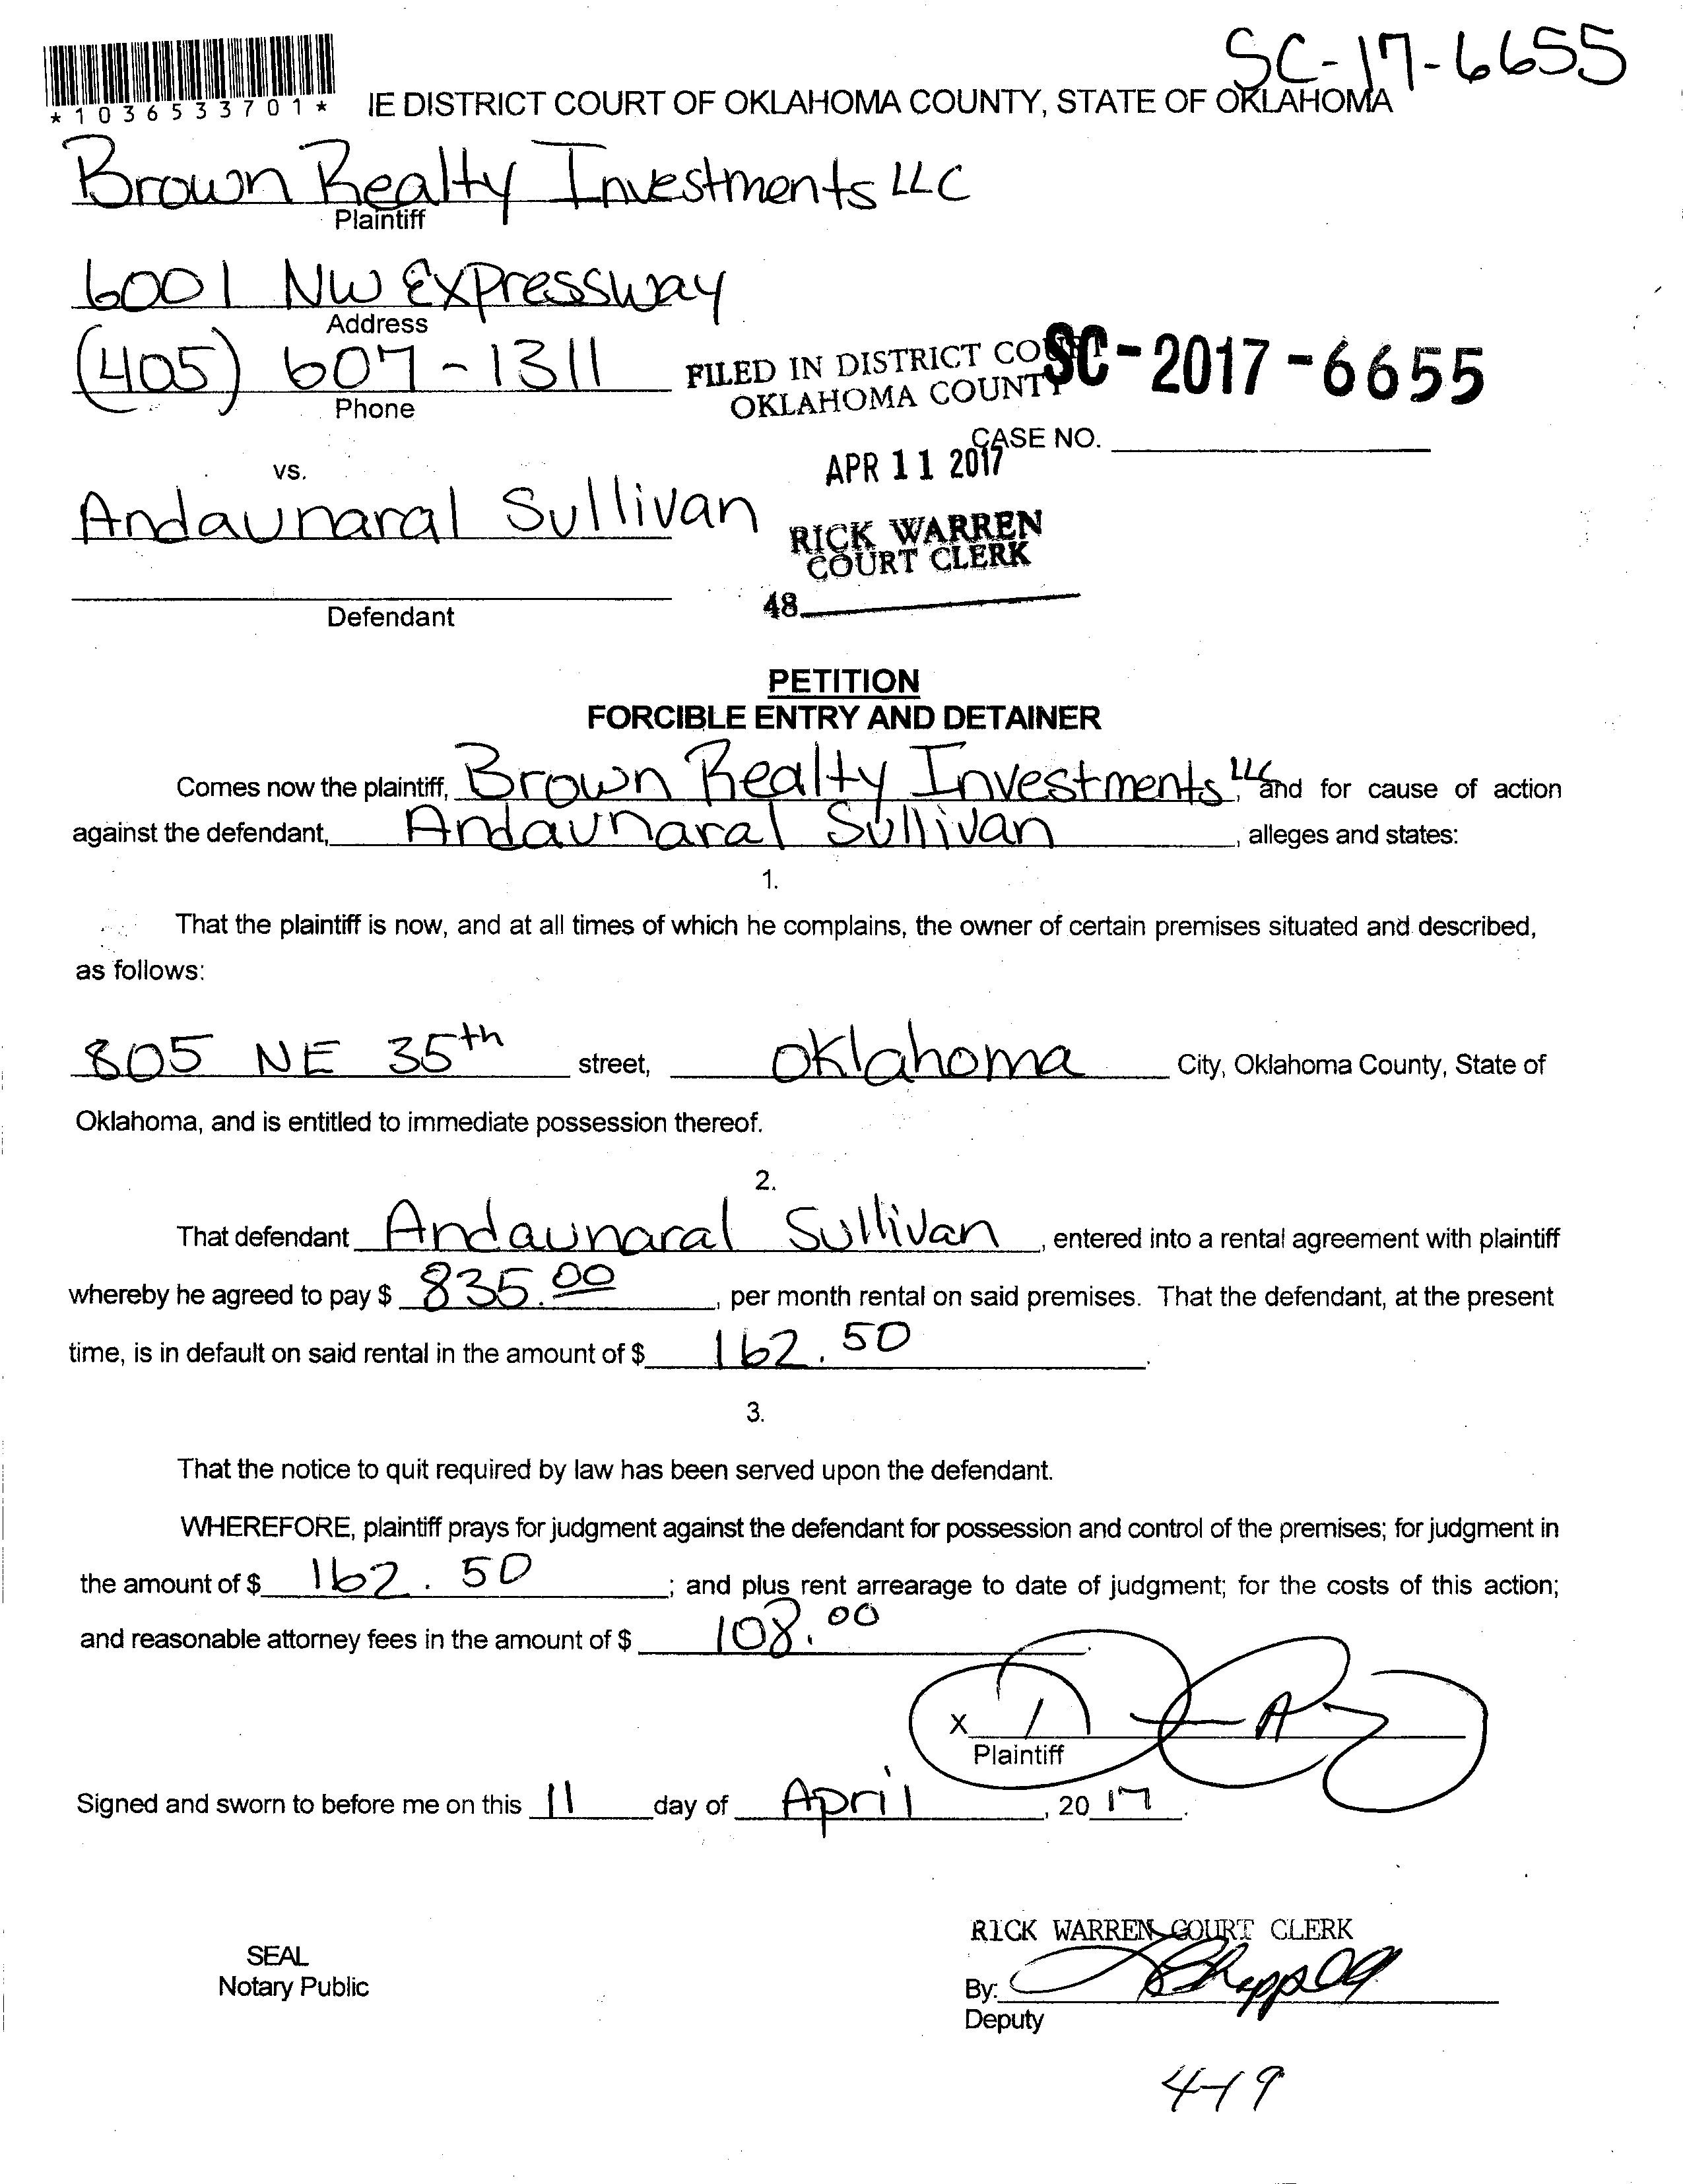 SC-17-6655
*1036533701*
IE DISTRICT COURT OF OKLAHOMA COUNTY, STATE OF OKLAHOMA
Brown Realty Investments LLC
Plaintiff
6001 NW Expressway
Address
(405) 607-1311
Phone
FILED IN DISTRICT COURT
OKLAHOMA COUNTY
SC-2017-6655
CASE NO.
APR 11 2017
vs.
Andaunaral Sullivan
RICK WARREN
COURT CLERK
48
Defendant
PETITION
FORCIBLE ENTRY AND DETAINER
Comes now the plaintiff, Brown Realty Investments LLC, and for cause of action
against the defendant, Andaunaral Sullivan, alleges and states:
1.
That the plaintiff is now, and at all times of which he complains, the owner of certain premises situated and described,
as follows:
805 NE 35th street, Oklahoma City, Oklahoma County, State of
Oklahoma, and is entitled to immediate possession thereof.
2.
That defendant Andaunaral Sullivan, entered into a rental agreement with plaintiff
whereby he agreed to pay $ 835.00, per month rental on said premises. That the defendant, at the present
time, is in default on said rental in the amount of $ 162.50.
3.
That the notice to quit required by law has been served upon the defendant.
WHEREFORE, plaintiff prays for judgment against the defendant for possession and control of the premises; for judgment in
the amount of $ 162.50; and plus rent arrearage to date of judgment; for the costs of this action;
and reasonable attorney fees in the amount of $ 108.00.
X
Plaintiff
Signed and sworn to before me on this 11 day of April, 2017.
RICK WARREN COURT CLERK
SEAL
Notary Public
By:
Deputy
4-19